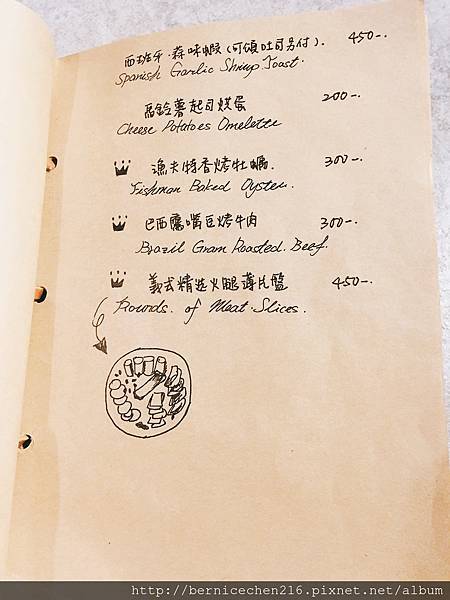 西班牙蒜味蝦(可頌吐司另付). 450-.
Spanish Garlic Shrimp Toast.
馬鈴薯起司烘蛋 200-.
Cheese Potatoes Omelette
漁夫特香烤牡蠣. 300-.
Fishman Baked Oyster.
巴西鷹嘴豆烤牛肉 300-.
Brazil Gram Roasted. Beef.
義式精選火腿薄片盤 450-.
Rounds. of Meat Slices.
http://bernicechen216.pixnet.net/album